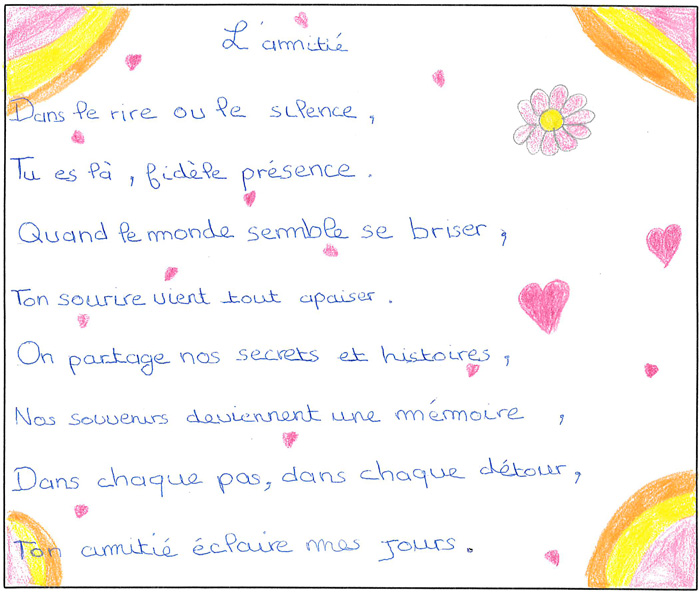 L'amitié
Dans le rire ou le silence,
Tu es là, fidèle présence.
Quand le monde semble se briser,
Ton sourire vient tout apaiser.
On partage nos secrets et histoires,
Nos souvenirs deviennent une mémoire,
Dans chaque pas, dans chaque détour,
Ton amitié éclaire mes jours.